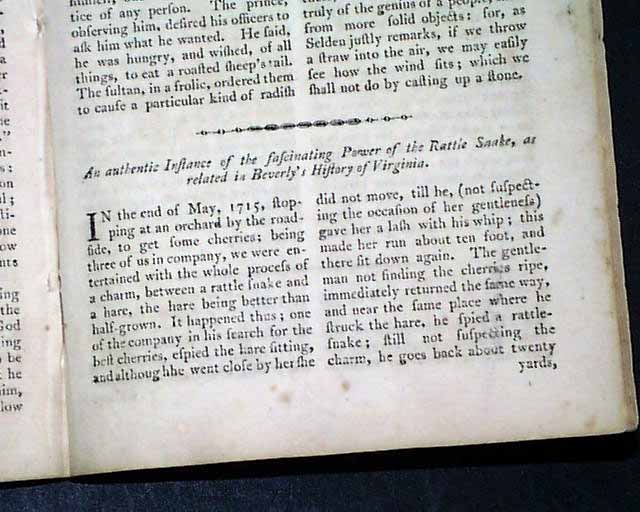 tice of any person. The prince,
obſerving him, deſired his officers to
aſk him what he wanted. He ſaid,
he was hungry, and wiſhed, of all
things, to eat a roaſted ſheep's tail.
The ſultan, in a frolic, ordered them
to cauſe a particular kind of radiſh
truly of the genius of a people,
from more ſolid objects: for, as
Selden juſtly remarks, if we throw
a ſtraw into the air, we may eaſily
ſee how the wind ſits; which we
ſhall not do by caſting up a ſtone.
An authentic Inſtance of the faſcinating Power of the Rattle Snake, as
related in Beverly's Hiſtory of Virginia.
IN the end of May, 1715, ſtop-
ping at an orchard by the road-
ſide, to get ſome cherries; being
three of us in company, we were en-
tertained with the whole proceſs of
a charm, between a rattle ſnake and
a hare, the hare being better than
half-grown. It happened thus; one
of the company in his ſearch for the
beſt cherries, eſpied the hare ſitting,
and although he went cloſe by her ſhe
did not move, till he, (not ſuſpect-
ing the occaſion of her gentleneſs)
gave her a laſh with his whip; this
made her run about ten foot, and
there ſit down again. The gentle-
man not finding the cherries ripe,
immediately returned the ſame way,
and near the ſame place where he
ſtruck the hare, he ſpied a rattle-
ſnake; ſtill not ſuſpecting the
charm, he goes back about twenty
yards,